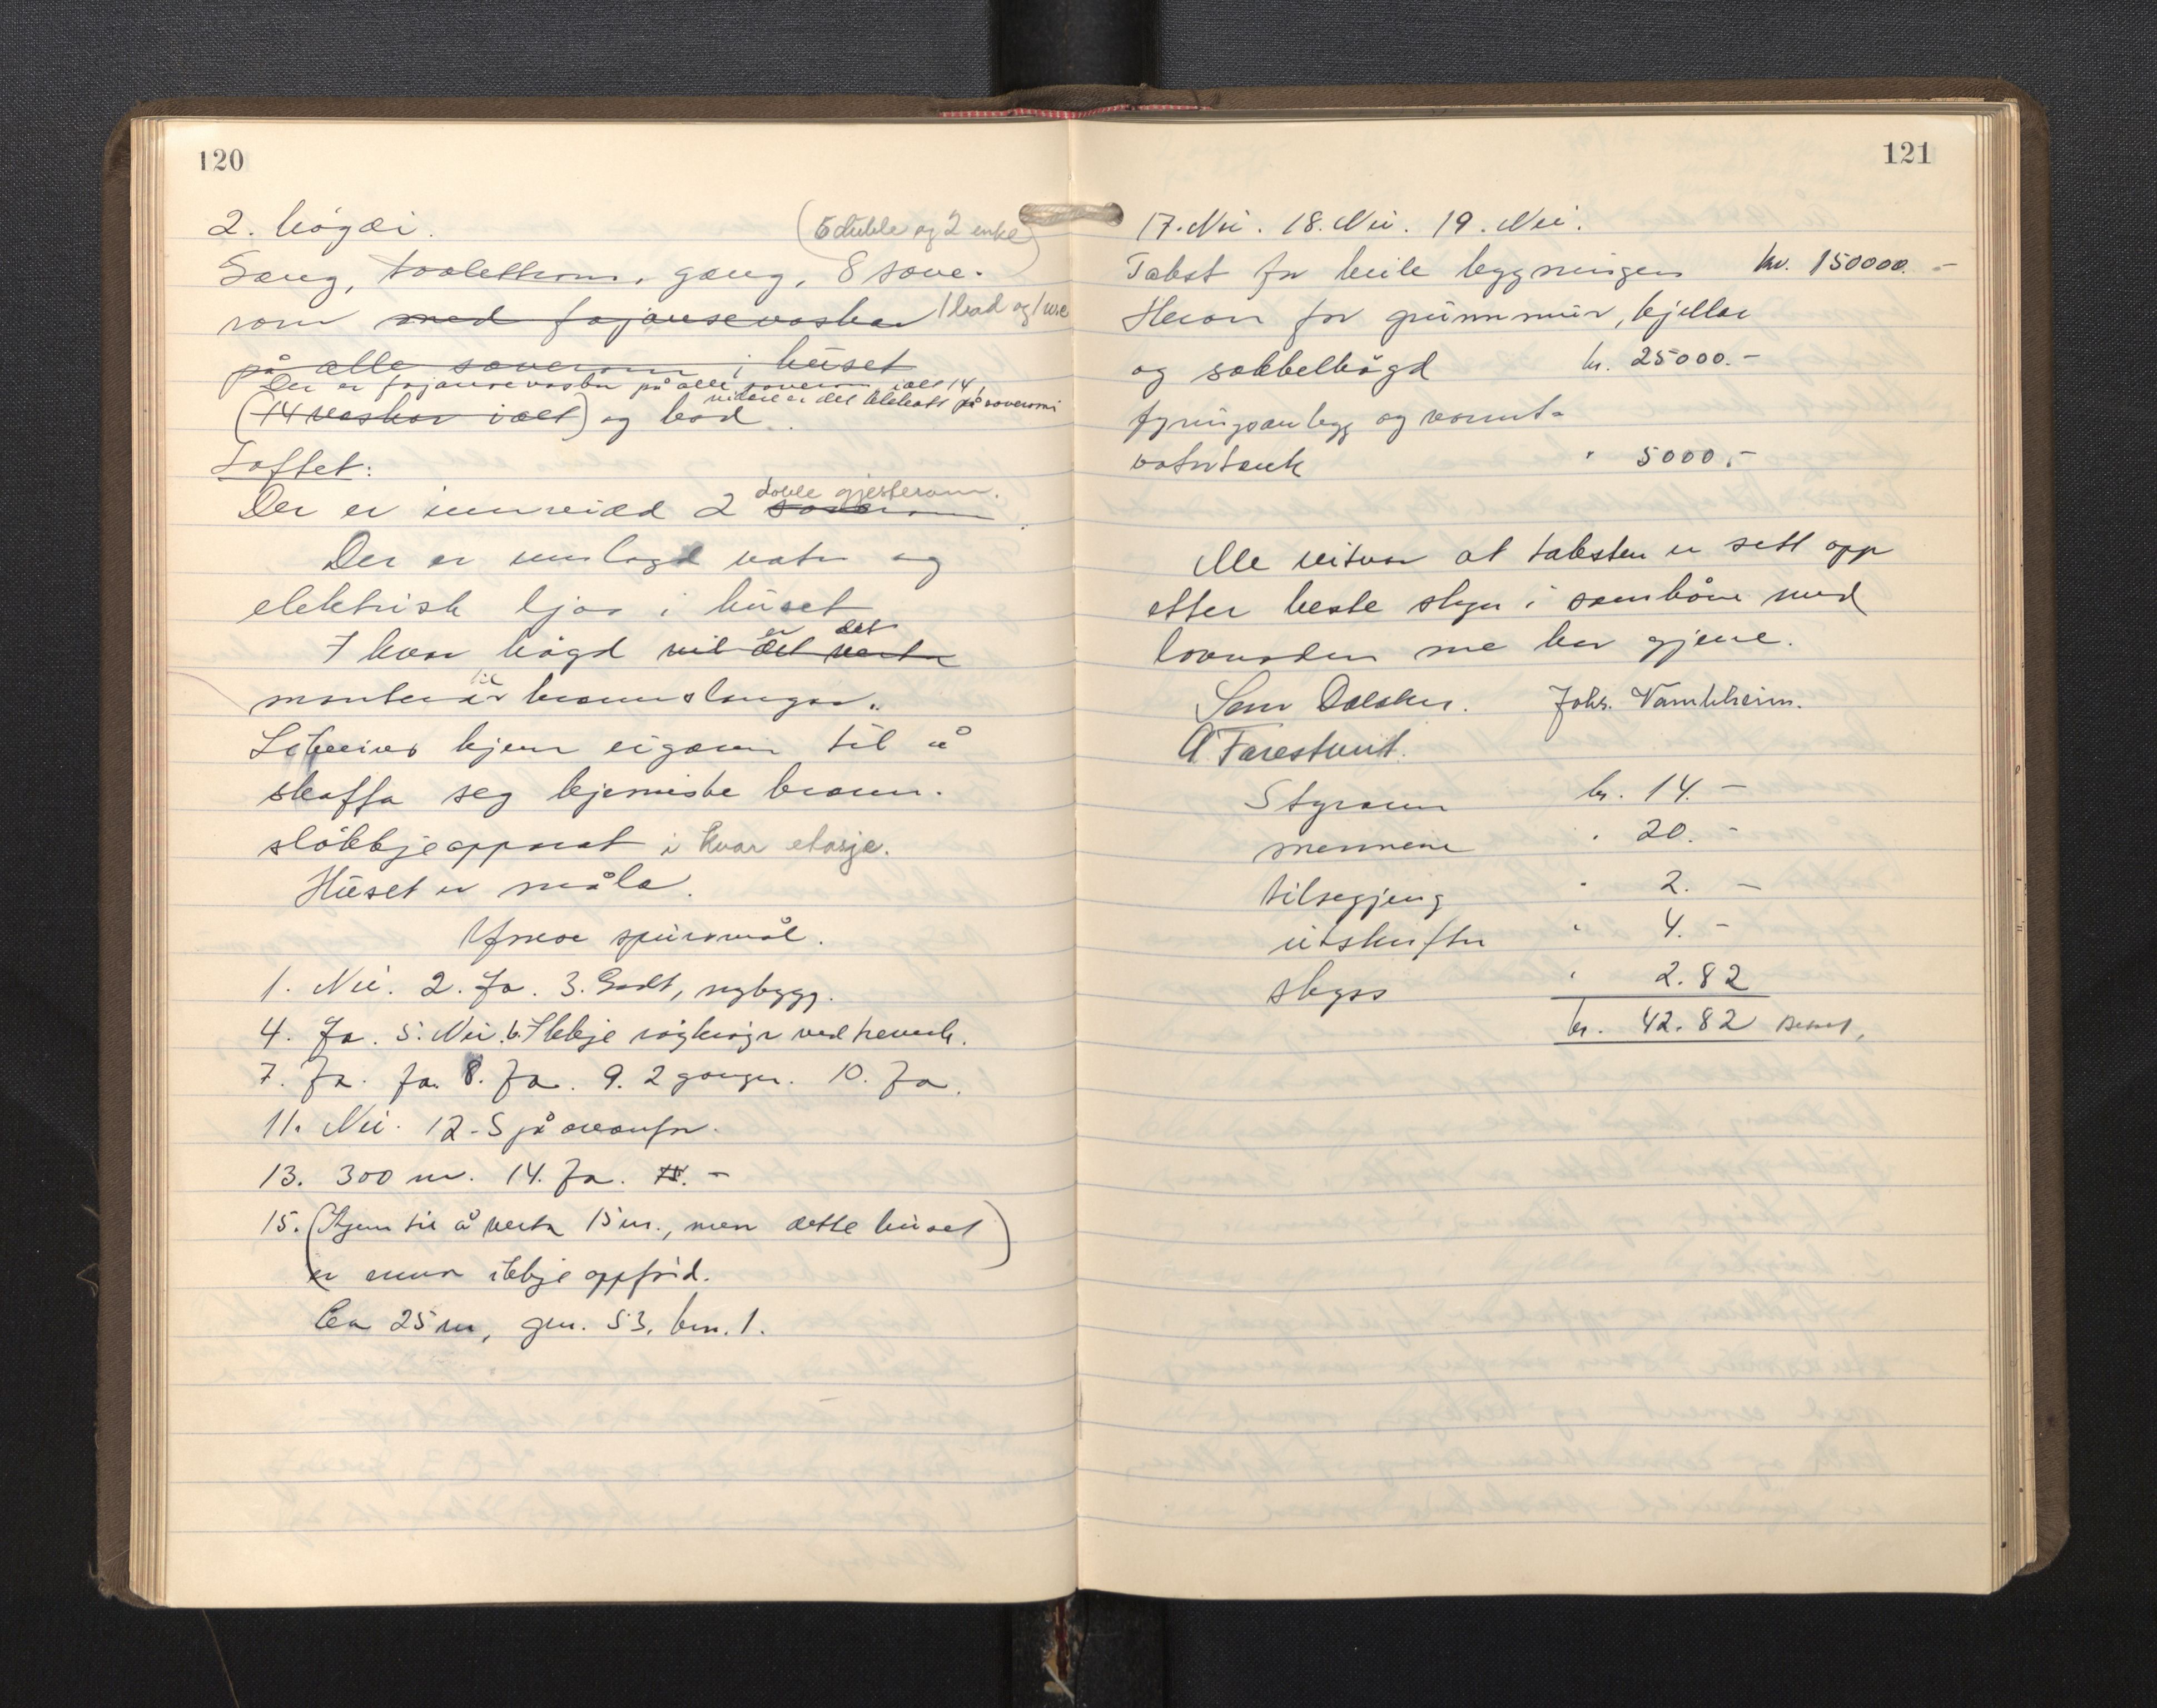 120
2. högdi. (6 duble og 2 enke)
Gang, toalettrom, gang, 8 sove-
rom med fajansevaskar 1 bad og 1 w.c
på alle soverom i huset
Der er fajansevaskar på alle soverom, ialt 14,
vidare er det på soveromi
(14 vaskar i alt) og bad.
Loftet:
Der er innreidd 2 soverom doble gjesterom.
Der er innlagd vatn og
elektrisk ljos i huset
I kvar högd vil det verta er det
montera til brannslangar.
Likeeins kjem eigaren til å
skaffa seg kjemiske brann-
slökkjeapparat i kvar etasje.
Huset er måla.
Ymse spursmål.
1. Nei. 2. Ja. 3. Godt, nybygg.
4. Ja. 5. Nei. 6. Ikkje röykrör ved treverk.
7. Ja. Ja. 8. Ja. 9. 2 gonger. 10. Ja.
11. Nei. 12. Sjå ovanfor.
13. 300 m. 14. Ja. 15. -
15. (Kjem til å verta 15 m., men dette huset
er enno ikkje oppförd.)
Ca 25 m, gnr. 53, bnr. 1.
121
17. Nei. 18. Nei. 19. Nei.
Takst for heile byggningen kr. 150000.-
Herav for grunnmur, kjellar
og sokkelhögd kr. 25000.-
fyringsanlegg og varmt-
vatntank " 5000.-
Me vitnar at taksten er sett opp
etter beste skyn i samhöve med
lovnaden me har gjeve.
Johs. Vambheim.
A Farestveit.
Styraren kr. 14.-
mennene " 20.-
tilsegjing " 2.-
utskrifter " 4.-
skyss " 2.82
kr. 42.82 Betalt,